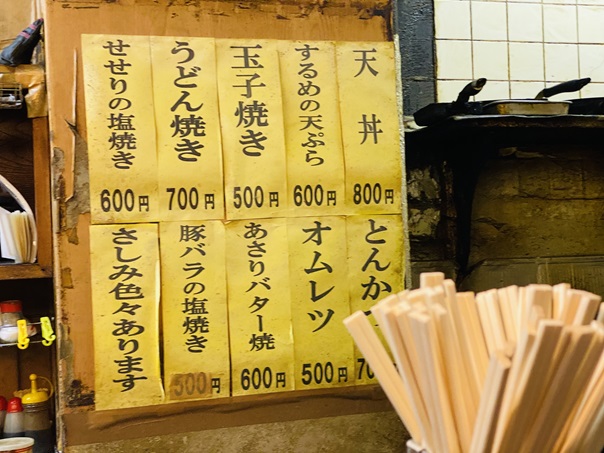 天丼
800円
するめの天ぷら
600円
玉子焼き
500円
うどん焼き
700円
せせりの塩焼き
600円
とんか
オムレツ
500円
あさりバター焼
600円
豚バラの塩焼き
500円
さしみ色々あります